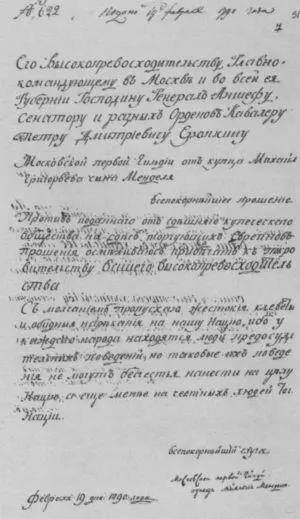 № 622
февраля 1790 года
7
Его Высокопревосходительству, Главно-
командующему въ Москвѣ и во всей ея
Губернiи Господину Генералъ Аншефу,
Сенатору и разныхъ Орденовъ Кавалеру
Петру Дмитрiевичу Еропкину
Московской первой Гильдiи отъ купца Михаила
Григорьева сына Менделя
всепокорнѣйшее прошенiе
Противъ поданнаго отъ здѣшняго купеческаго
общества на торгующихъ Евреиновъ
прошенiя осмѣливаюсь прибегнуть къ покро
вительству вашего высокопревосходитель
ства
Съ молчанiемъ пропускаю жестокiя клеветы
и обидныя нарѣканiя на нашу Нацiю, ибо у
каждаго народа находятся люди предосуди
тельныхъ поведенiй, но таковые ихъ поведе
нiя не могутъ безчестья нанести на цѣлу
Нацiю, а еще менѣе на честныхъ людей той
Нацiи.
всепокорнѣйшiй слуга
Московской первой Гильдiи
купецъ Мендель
Февраля 19 дня 1790 года